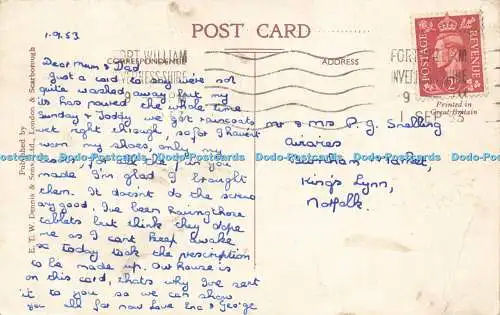 1.9.53
POST CARD
CORRESPONDENCE
ADDRESS
FORT WILLIAM
INVERNESS-SHIRE
POSTAGE
REVENUE
Printed in
Great Britain
Published by
E. T. W. Dennis & Sons, Ltd., London & Scarborough
Dear Mum & Dad
Just a card to say we're not
quite washed away but my
its has poured the whole time
Sunday & Today we got raincoats
wet right through, so far I haven't
worn my shoes, only my
made I'm glad I brought
them. It doesnt do the
any good. I've been having those
tablets but think they dope
me as I cant keep awake
so today took the prescription
to be made up. Our house is
on this card, thats why I've sent
it to you so we can show
you all for now Love Ena & George
Mr & Mrs P. J. Snelling
Burnham Market,
King's Lynn,
Norfolk.
Dodo-Postcards